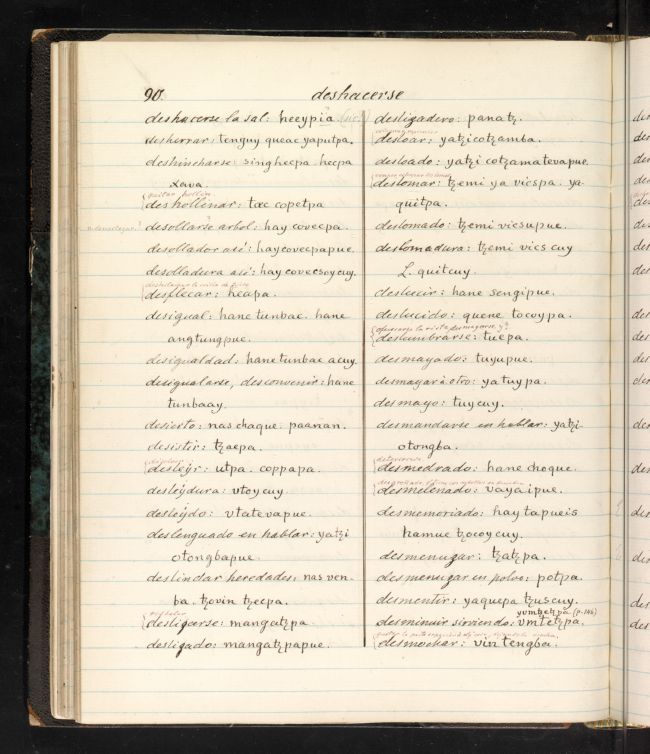 90.
deshacerse
deshacerse la sal: heeypia (sic)
desherrar: tenguy queac yaputpa.
deshincharse: singhecpa hecpa
Lava.
quitar hollin
deshollinar: tæc copetpa
desollarse arbol: hay covecpa.
desollador asi: hay covecpapue.
desolladura asi: hay covecsoycuy.
desplecar: heapa.
desigual: hane tunbac. hane
angtungpue.
desigualdad: hane tunbac acuy.
desigualarse, desconvenir: hane
tunbaay.
desierto: nas chaque. paanan.
desistir: tzaepa.
desleyr: utpa. coppapa.
desleydura: vtoycuy.
desleydo: vtatevapue.
deslenguado en hablar: yatzi
otongbapue.
deslindar heredades: nas ven-
ba. tzovin tzecpa.
resbalar
desligerse: mangatzpa
desligado: mangatzpapue.
deslizadero: panatz.
desloar: yatzicotzamba.
desloado: yatzi cotzamatevapue.
deslomar: tzemi ya vicspa. ya-
quitpa.
deslomado: tzemi vicsupue.
deslomadura: tzemi vics cuy
L. quitcuy.
deslucir: hane sengipue.
deslucido: quene tocoypa.
deslumbrarse: tuepa.
desmayado: tuyupue.
desmayar à otro: yatuypa.
desmayo: tuycuy.
desmandarse en hablar: yatzi-
otongba.
desmedrado: hane choque.
desmelenado: vayaipue.
desmemoriado: hay tapueis
hamue tzocoycuy.
desmenuzar: tzatzpa.
desmenuzar en polvo: potpa.
desmentir: yaquepa tzuscuy.
yumtetzpa (p. 146)
desminuir sirviendo: vmtetzpa.
desmochar: vin tengba.